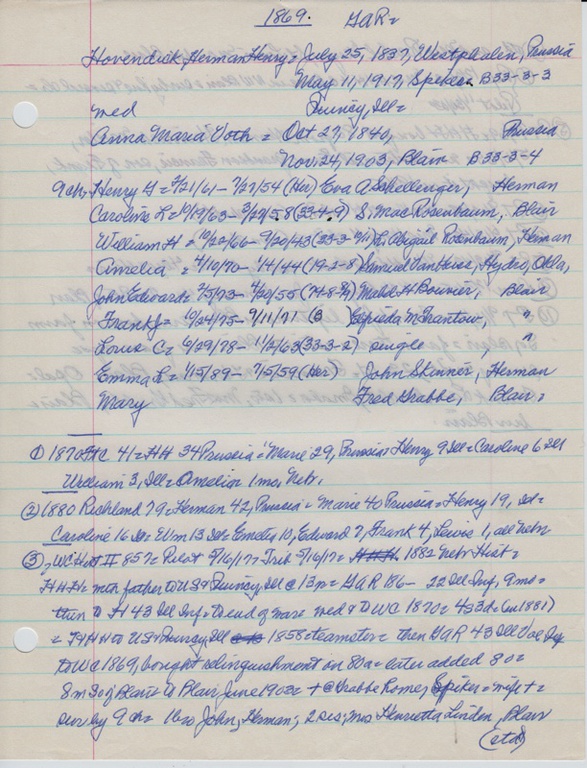 1869. GAR=
Hovendick, Herman Henry = July 25, 1837, Westphalen, Prussia
May 11, 1917, Spiker B33-3-3
med Quincy, Ill=
Anna Maria Voth = Oct 27, 1840, Prussia
Nov. 24, 1903, Blair B33-3-4
9 ch= Henry H= 3/21/61 - 7/27/54 (Her) Eva A Schellenger, Herman
Caroline L= 10/19/63 - 3/27/58 (33-4-9) S. Mac Rosenbaum, Blair
William H = 10/22/66 - 9/20/43 (33-3- L. Abigail Rosenbaum, Herman
Amelia = 4/10/70 - 1/4/44 (19-2-8) Samuel Van Huse, Hydro, Okla,
John Edward = 2/5/73 - 4/20/55 (74-8- Mabel H Bouvier, Blair
Frank J= 10/24/75 - 9/11/71 (B ) Cepieda M Grantow, "
Louis C= 6/29/78 - 11/2/63 (33-3-2) single "
Emma L= 1/15/89 - 7/5/59 (Her) John Skinner, Herman
Mary Fred Grabbe, Blair =
① 1870 FC 41= HH 34 Prussia = Marie 29, Prussia = Henry 9 Ill= Caroline 6 Ill
William 3, Ill= Amelia 1 mo, Nebr,
② 1880 Richland 79= Herman 42, Prussia = Marie 40 Prussia = Henry 19, Ill=
Caroline 16 Ill= Wm 13 Ill= Emelia 10, Edward 7, Frank 4, Lewis 1, all Nebr
③ WC Hist II 857= Pilot 5/16/17= Trib 5/16/17= 1882 Nebr Hist=
HHH= with father to US @ Quincy, Ill @ 13 = GAR 186- 22 Ill Inf, 9 mo=
then to H 43 Ill Inf= to end of war= med @ to WC 1870= 4S3D= (in 1881)
= HHH to US= Quincy, Ill 1858= teamster= then GAR 43 Ill Vol Inf
to WC 1869, bought relinquishment on 80a= later added 80=
8 m SO of Blair= to Blair June 1903= + @ Grabbe Home, Spiker = wife + =
sur by 9 ch= 1 bro John, Herman; 2 sis; Mrs Henrietta Linden, Blair
(etd)